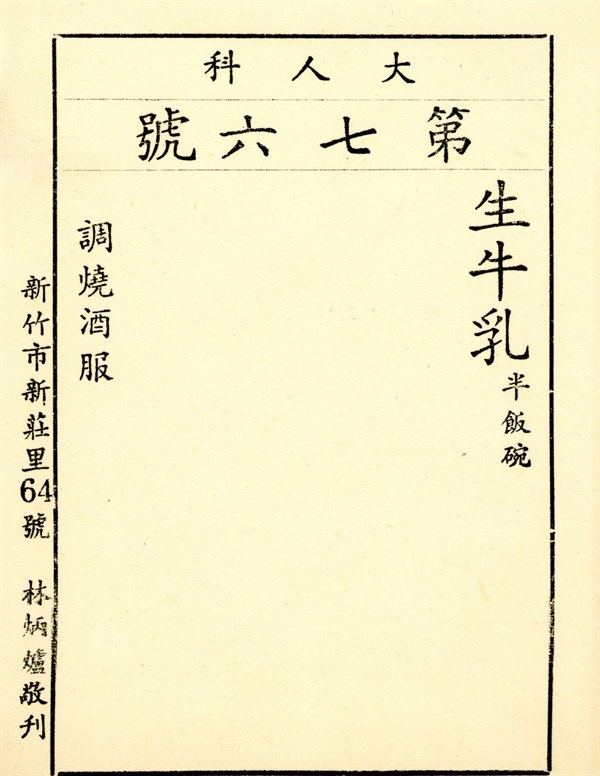 大人科
第七六號
生牛乳半飯碗
調燒酒服
新竹市新莊里64號 林炳爐敬刊